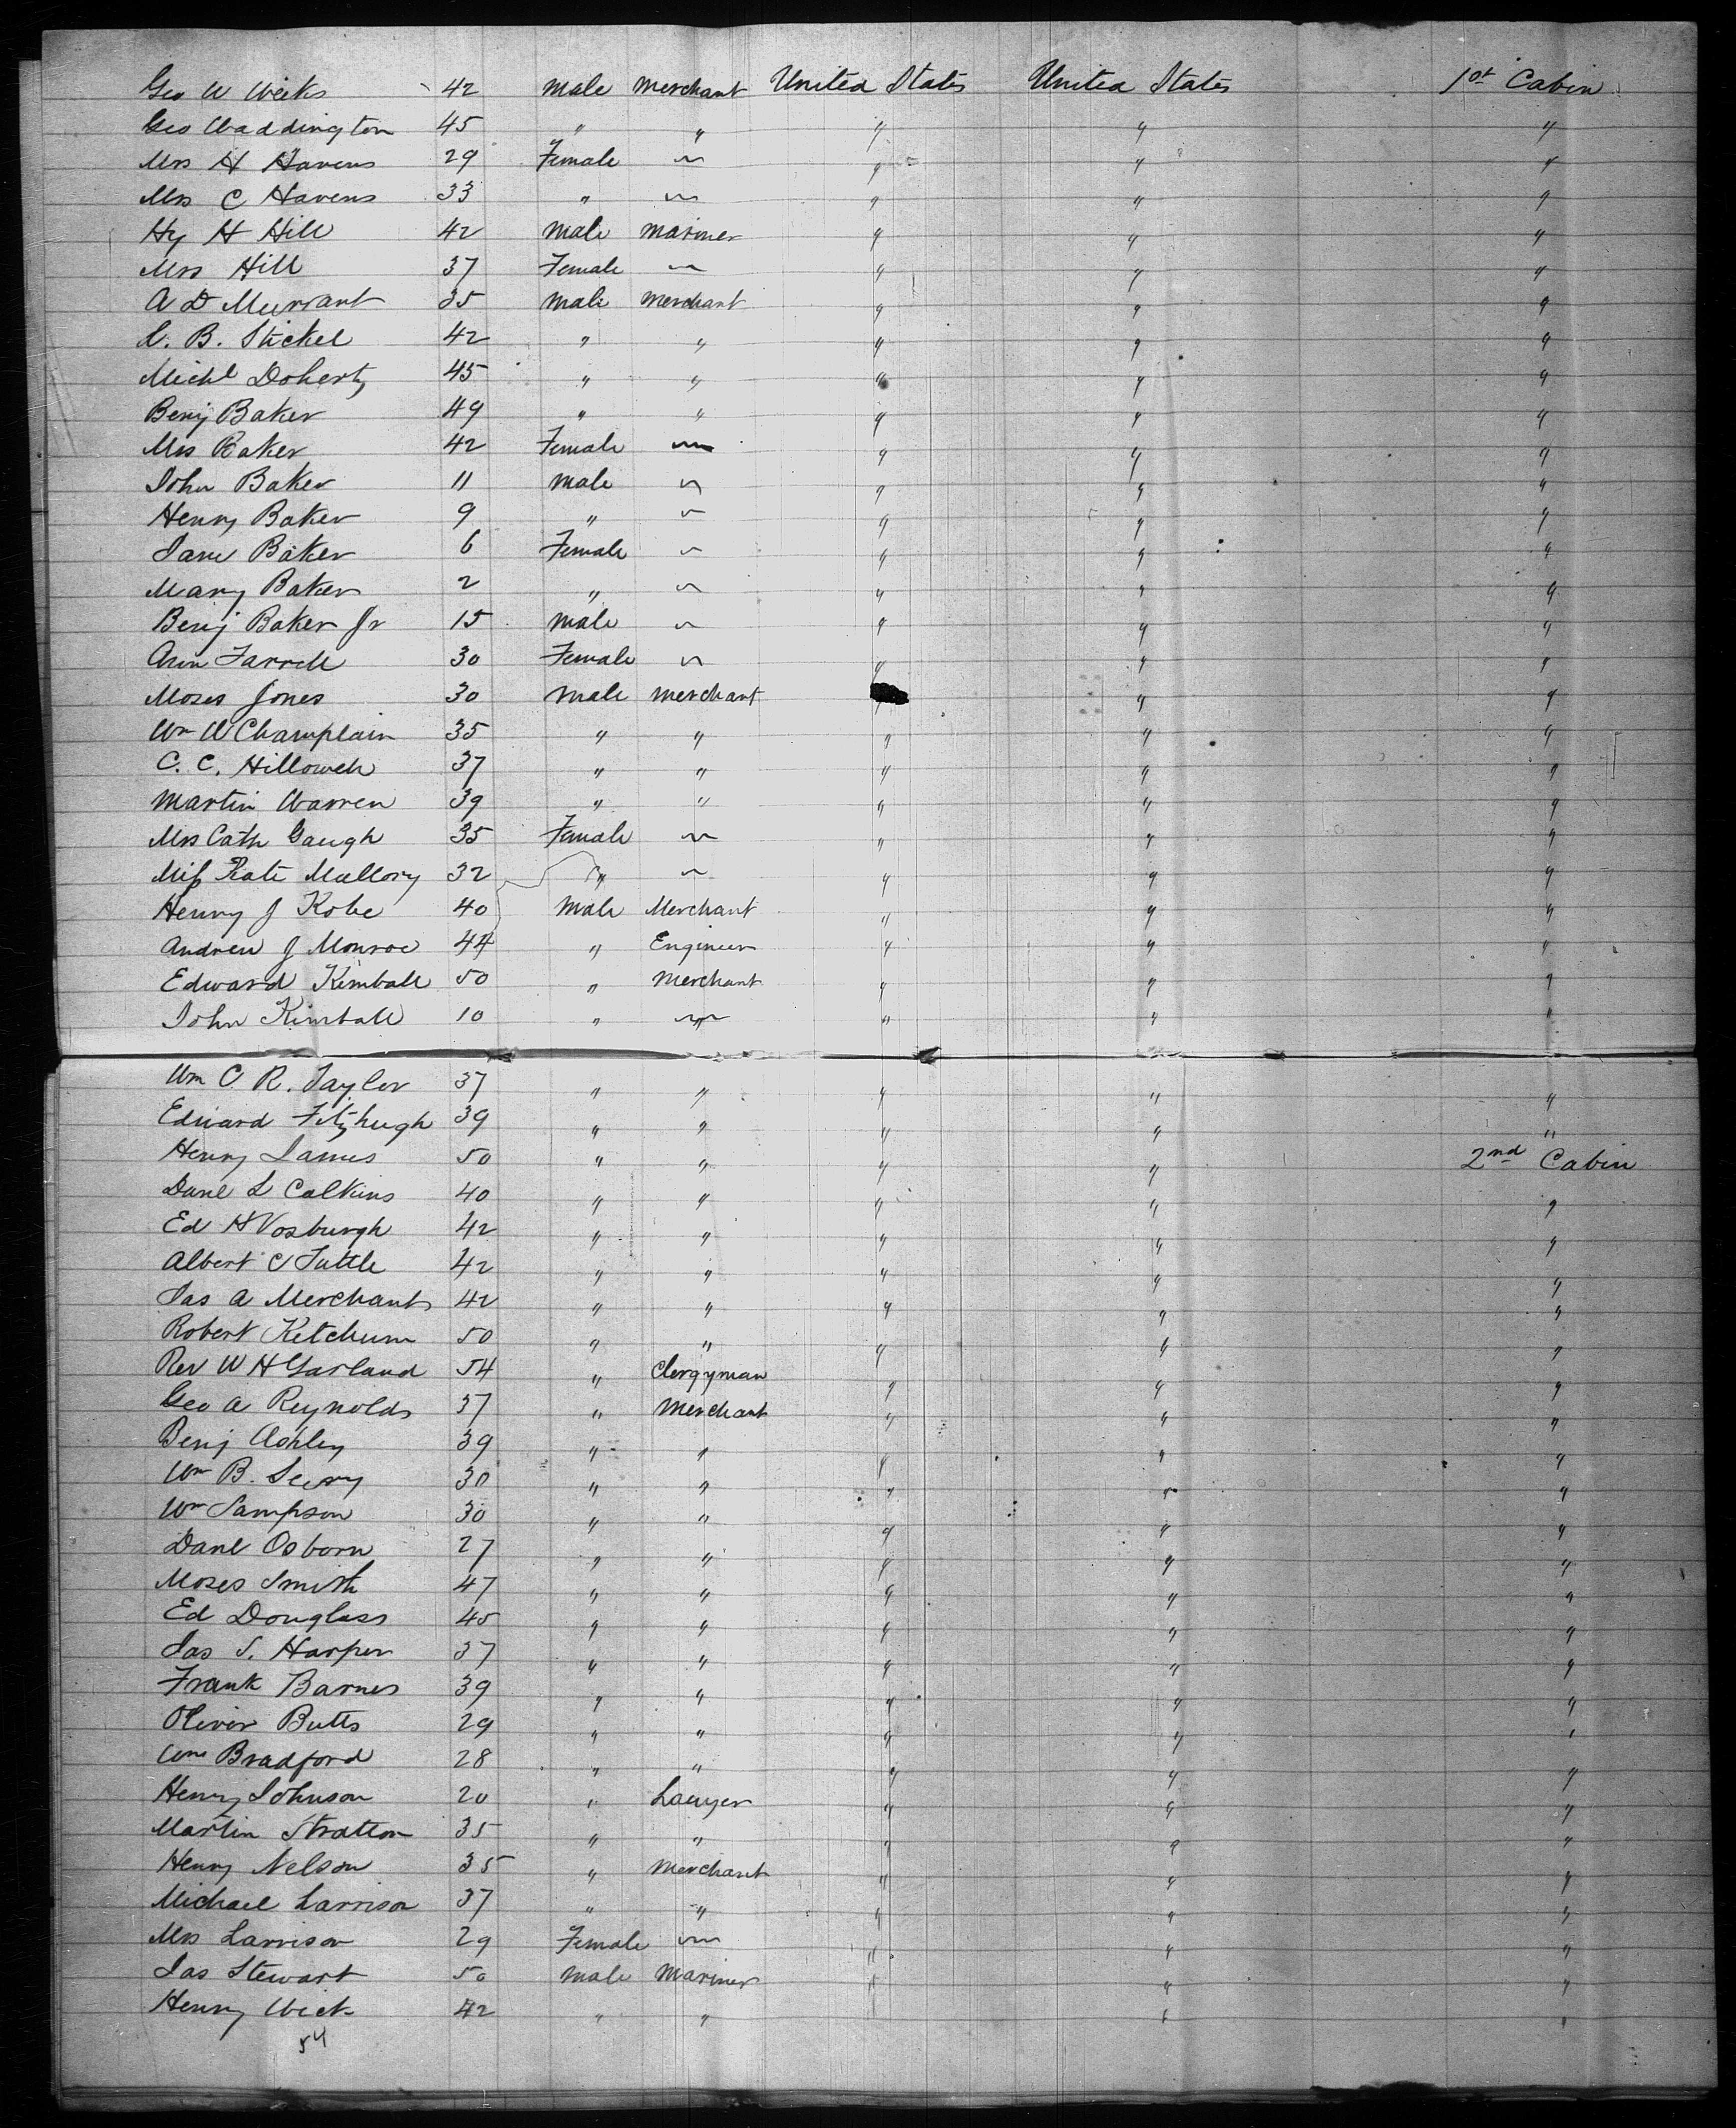 Geo W Weeks 42 male merchant United States United States 1st Cabin
Geo Waddington 45 " " " " "
Mrs H Havens 29 Female ~ " " "
Mrs C Havens 33 " ~ " " "
Hy H Hill 42 male mariner " " "
Mrs Hill 37 Female ~ " " "
A D Murrant 35 male merchant " " "
B. Stickel 42 " " " " "
Michl Doherty 45 " " " " "
Benj Baker 49 " " " " "
Mrs Baker 42 Female ~ " " "
John Baker 11 male ~ " " "
Henry Baker 9 " ~ " " "
Jane Baker 6 Female ~ " " "
Mary Baker 2 " ~ " " "
Benj Baker Jr 15 male ~ " " "
Ann Farrell 30 Female ~ " " "
Moses Jones 30 male merchant " " "
Wm W Champlain 35 " " " " "
C. C. 37 " " " " "
Martin Warren 39 " " " " "
Mrs Cath Gaugh 35 Female ~ " " "
Miss Kate Mallory 32 " ~ " " "
Henry J Kobe 40 male Merchant " " "
Andrew J Monroe 44 " Engineer " " "
Edward Kimball 50 " merchant " " "
John Kimball 10 " ~ " " "
Wm C R. Taylor 37 " " " " "
Edward Fitzhugh 39 " " " " "
Henry James 50 " " " " 2nd Cabin
Danl L Calkins 40 " " " " "
Ed H Vosburgh 42 " " " " "
Albert C Tuttle 42 " " " " "
Jas A Merchant 42 " " " " "
Robert Ketchum 50 " " " " "
Rev W H Garland 54 " Clergyman " " "
Geo A Reynolds 37 " merchant " " "
Benj Ashley 39 " " " " "
Wm B. 30 " " " " "
Wm Sampson 30 " " " " "
Danl Osborn 27 " " " " "
Moses Smith 47 " " " " "
Ed Douglass 45 " " " " "
Jas S. Harper 37 " " " " "
Frank Barnes 39 " " " " "
Oliver Butts 29 " " " " "
Wm Bradford 28 " " " " "
Henry Johnson 20 " Lawyer " " "
Martin Stratton 35 " " " " "
Henry Nelson 35 " merchant " " "
Michael Larrison 37 " " " " "
Mrs Larrison 29 Female ~ " " "
Jas Stewart 50 male mariner " " "
Henry Wick 42 " " " " "
54